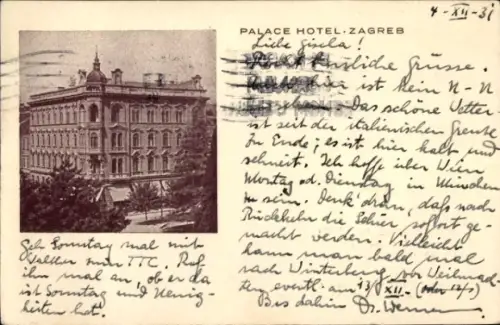 4-XII-31
PALACE HOTEL · ZAGREB
Liebe Gisela!
herzliche Grüsse.
hier ist kein N-N
Das schöne Wetter
ist seit der italienischen Grenze
zu Ende; es ist hier kalt und
schneit. Ich hoffe über Wien
Montag od. Dienstag in München
zu sein. Denk' dran, dass nach
Rückkehr die Skier sofort ge-
macht werden. Vielleicht
kann man bald mal
nach Winterberg, vor Weihnach-
ten eventl. am 13/XII. (oder 12/)
Bis dahin Dr. Werner
Geh Sonntag mal mit
Walter zum TTC. Ruf
ihn mal an, ob er da
ist Sonntag und Neuig-
keiten hat.